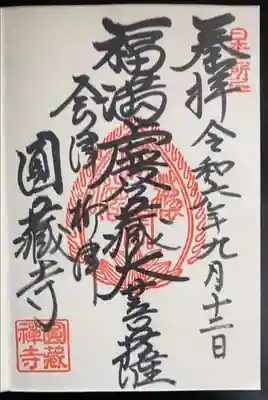 奉拝 令和六年九月十二日
福満虚空蔵大菩薩
会津柳津
圓蔵寺
圓蔵
禅寺